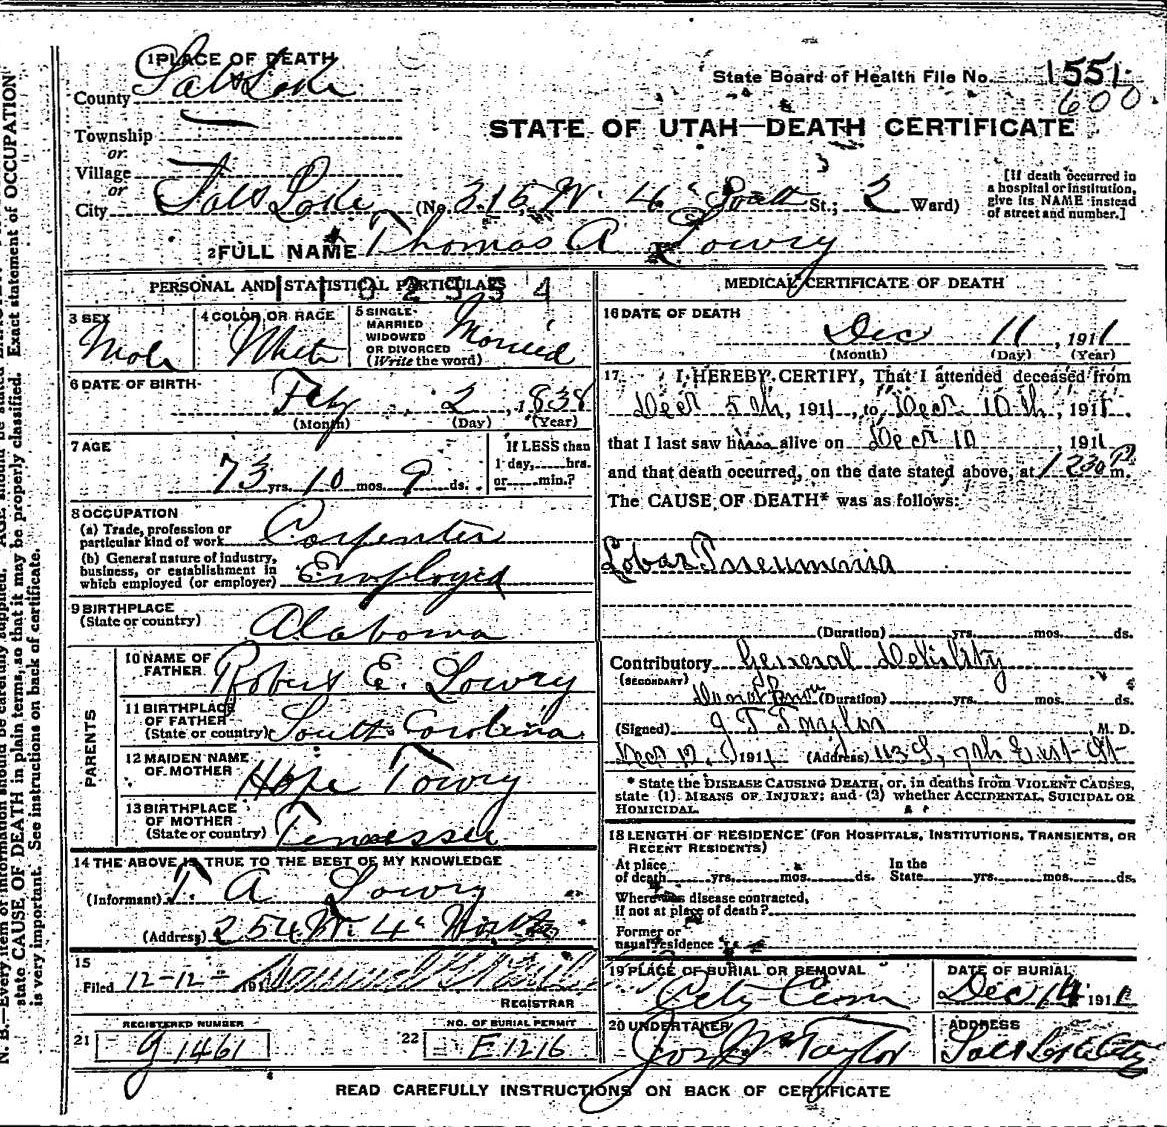 1 PLACE OF DEATH
County Salt Lake
State Board of Health File No. 1551
600
STATE OF UTAH—DEATH CERTIFICATE
Township
or
Village
or
City Salt Lake (No. 315 W 4" South St.; 2 Ward)
[If death occurred in
a hospital or institution,
give its NAME instead
of street and number.]
2 FULL NAME Thomas A Lowry
PERSONAL AND STATISTICAL PARTICULARS
3 SEX
Male
4 COLOR OR RACE
White
5 SINGLE
MARRIED
WIDOWED
OR DIVORCED
(Write the word)
Married
6 DATE OF BIRTH
Feby 2, 1838
(Month) (Day) (Year)
7 AGE
73 yrs. 10 mos. 9 ds.
If LESS than
1 day, hrs.
or min.?
8 OCCUPATION
(a) Trade, profession or
particular kind of work Carpenter
(b) General nature of industry,
business, or establishment in
which employed (or employer) Employed
9 BIRTHPLACE
(State or country) Alabama
PARENTS
10 NAME OF
FATHER Robert E. Lowry
11 BIRTHPLACE
OF FATHER
(State or country) South Carolina
12 MAIDEN NAME
OF MOTHER Hope Towry
13 BIRTHPLACE
OF MOTHER
(State or country) Tennessee
14 THE ABOVE IS TRUE TO THE BEST OF MY KNOWLEDGE
(Informant) T. A Lowry
(Address) 254 W. 4" North
15
Filed 12-12- 191
REGISTRAR
REGISTERED NUMBER
21 G 1461
NO. OF BURIAL PERMIT
22 E 1216
MEDICAL CERTIFICATE OF DEATH
16 DATE OF DEATH
Dec 11, 1911
(Month) (Day) (Year)
17 I HEREBY CERTIFY, That I attended deceased from
Decr 5th, 1911, to Decr 10th, 1911,
that I last saw him alive on Decr 10 1911
and that death occurred, on the date stated above, at 1230 P m.
The CAUSE OF DEATH* was as follows:
Lobar Pneumonia
(Duration) yrs. mos. ds.
Contributory General Debility
(SECONDARY)
Do not know (Duration) yrs. mos. ds.
(Signed) M. D.
Decr 12, 1911 (Address) 7th East St
* State the DISEASE CAUSING DEATH, or, in deaths from VIOLENT CAUSES,
state (1) MEANS OF INJURY; and (2) whether ACCIDENTAL, SUICIDAL OR
HOMICIDAL.
18 LENGTH OF RESIDENCE (FOR HOSPITALS, INSTITUTIONS, TRANSIENTS, OR
RECENT RESIDENTS)
At place
of death yrs. mos. ds.
In the
State yrs. mos. ds.
Where was disease contracted,
if not at place of death?
Former or
usual residence
19 PLACE OF BURIAL OR REMOVAL
City Cem
DATE OF BURIAL
Dec 14 1911
20 UNDERTAKER
Jos Wm Taylor
ADDRESS
Salt Lake City
READ CAREFULLY INSTRUCTIONS ON BACK OF CERTIFICATE
N. B.—Every item of information should be carefully supplied. AGE should be stated
state CAUSE OF DEATH in plain terms, so that it may be properly classified. Exact statement of OCCUPATION
is very important. See instructions on back of certificate.